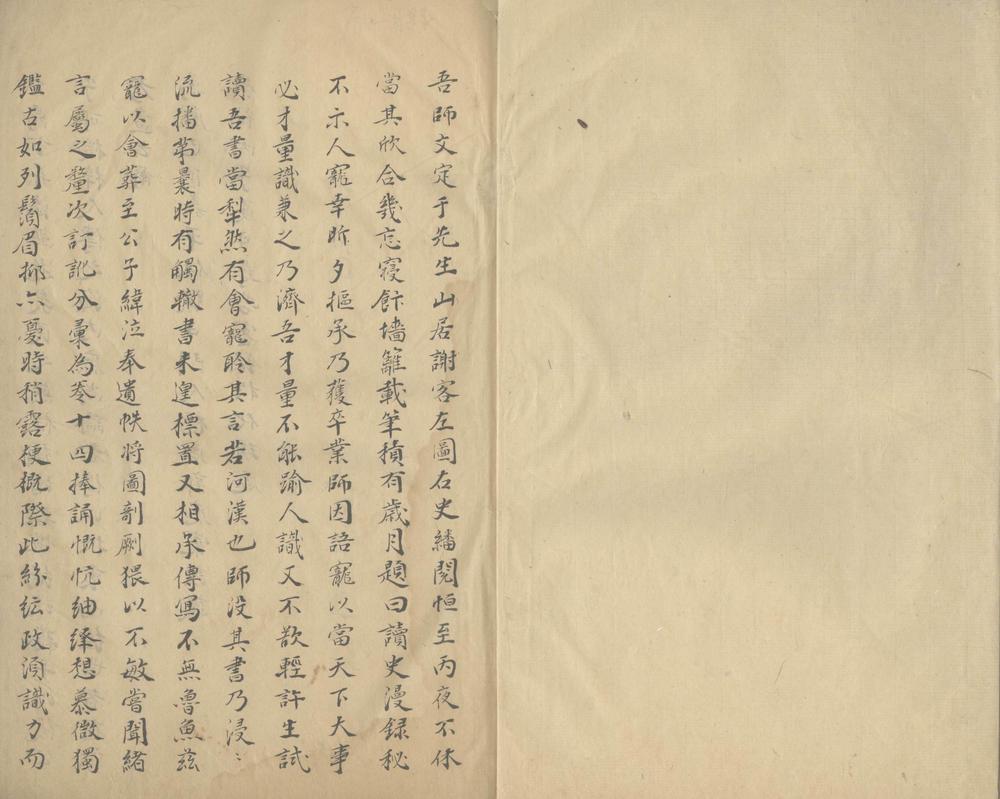 吾師文定于先生山居謝客左圖右史繙閱恒至丙夜不休
當其欣合幾忘寢飰墻籬載筆積有歲月題曰讀史漫錄秘
不示人寵幸昕夕摳承乃獲卒業師因語寵以當天下大事
必才量識兼之乃濟吾才量不能踰人識又不敢輕許生試
讀吾書當犁然有會寵聆其言若河漢也師没其書乃浸〻
流播第曩時有觸輙書未遑標置又相承傳寫不無魯魚茲
寵以會葬至公子緯泣奉遺帙将圖剞劂猥以不敏嘗聞緒
言屬之釐次訂訛分彙為卷十四捧誦慨忼紬繹想慕微獨
鑑古如列鬚眉抑亦憂時稍露梗概際此紛紜政須識力而